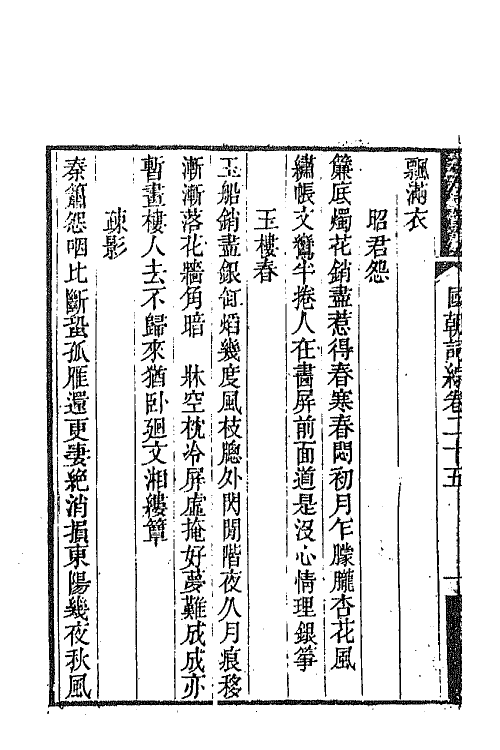 國朝詞綜卷二十五
飄滿衣
昭君怨
簾底燭花銷盡惹得春寒春悶初月乍朦朧杏花風
繡帳文鴛半捲人在畵屏前面道是沒心情理銀箏
玉樓春
玉船銷盡銀缸焰幾度風枝牕外閃閒階夜久月痕移
漸漸落花牆角暗　牀空枕冷屏虛掩好夢難成成亦
暫畫樓人去不歸來猶卧廻文湘縷簟
疎影
秦簫怨咽比斷蛩孤雁還更凄絶消損東陽幾夜秋風